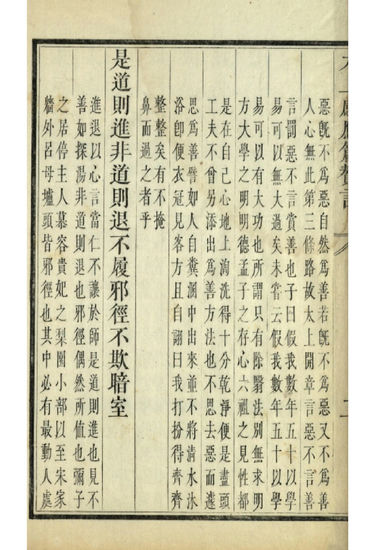 太上感應篇贅言
惡旣不爲惡自然爲善若旣不爲惡又不爲善
人心無此第三條路故太上開章言惡不言善
言罰惡不言賞善也子曰假我數年五十以學
易可以無大過矣未嘗云假我數年五十以學
易可以有大功也所謂只有除翳法別無求明
方大學之明明德孟子之存心六祖之見性都
是在自己心地上洵洗得十分乾淨便是盡頭
工夫不曾另添出爲善方法也不思去惡而遽
思爲善譬如人自糞溷中出來並不將淸水沐
浴卽便衣冠見客方且自詡曰我打扮得齊齊
整整矣有不掩
鼻而過之者乎
是道則進非道則退不履邪徑不欺暗室
進退以心言當仁不讓於師是道則進也見不
善如探湯非道則退也邪徑偶然所值也彌子
之居停主人慕容貴妃之梨園小部以至宋家
牆外呂母壚頭皆邪徑也其中必有最動人處